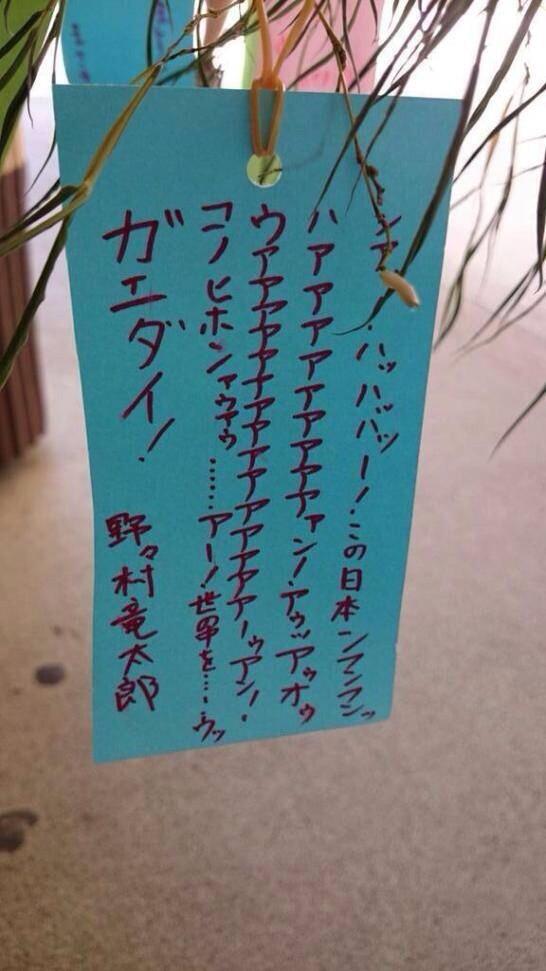 ンァ！ハッハバッー！この日本ンフンフンッ
ハアアアアアアアアアァン！アゥッアゥオゥ
ウアアアアアアアアアアアアアアーゥアン！
コノヒホンァゥアゥ……アー！世界を…ゥッ
ガエダイ！
野々村竜太郎